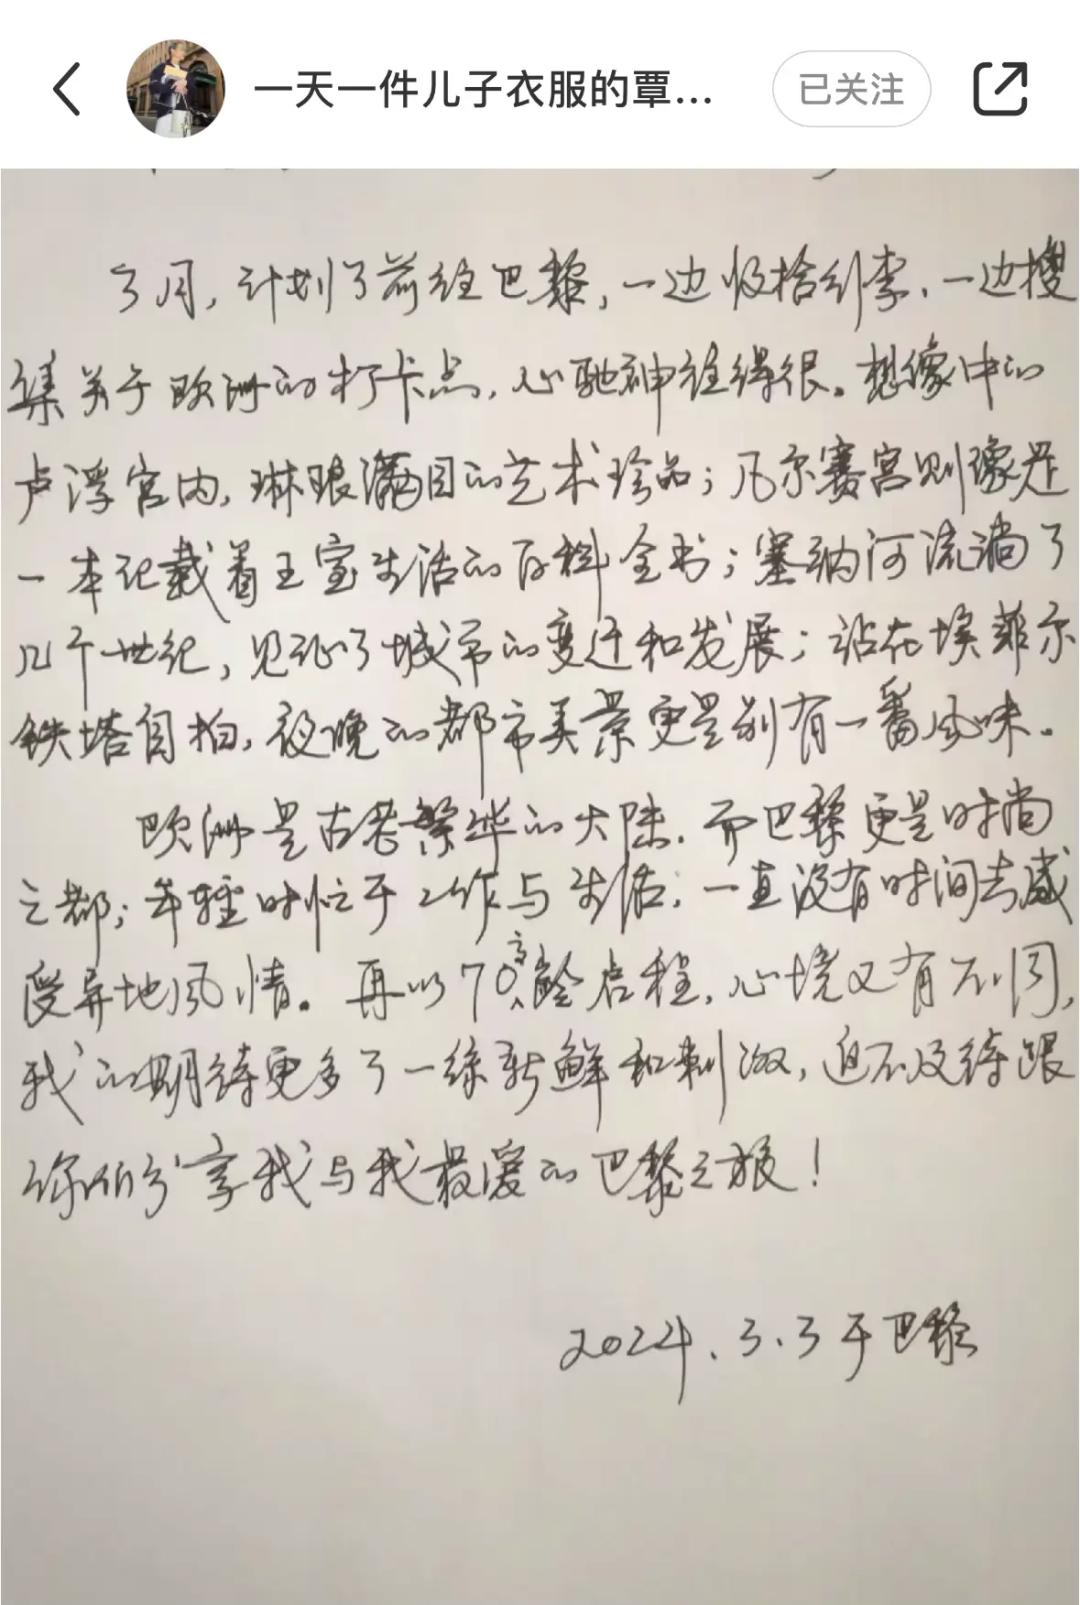 一天一件儿子衣服的覃...
已关注
3月，计划了前往巴黎，一边收拾行李，一边搜
集关于欧洲的打卡点，心驰神往得很。想像中的
卢浮宫内，琳琅满目的艺术珍品；凡尔赛宫则像是
一本记载着王室生活的百科全书；塞纳河流淌了
几个世纪，见证了城市的变迁和发展；站在埃菲尔
铁塔自拍，夜晚的都市美景更是别有一番风味。
欧洲是古老繁华的大陆，而巴黎更是时尚
之都；年轻时忙于工作与生活，一直没有时间去感
受异地风情。再以70高龄启程，心境又有不同，
我的期待更多了一缕新鲜和刺激，迫不及待跟
你们分享我与我最爱的巴黎之旅！
2024.3.3于巴黎